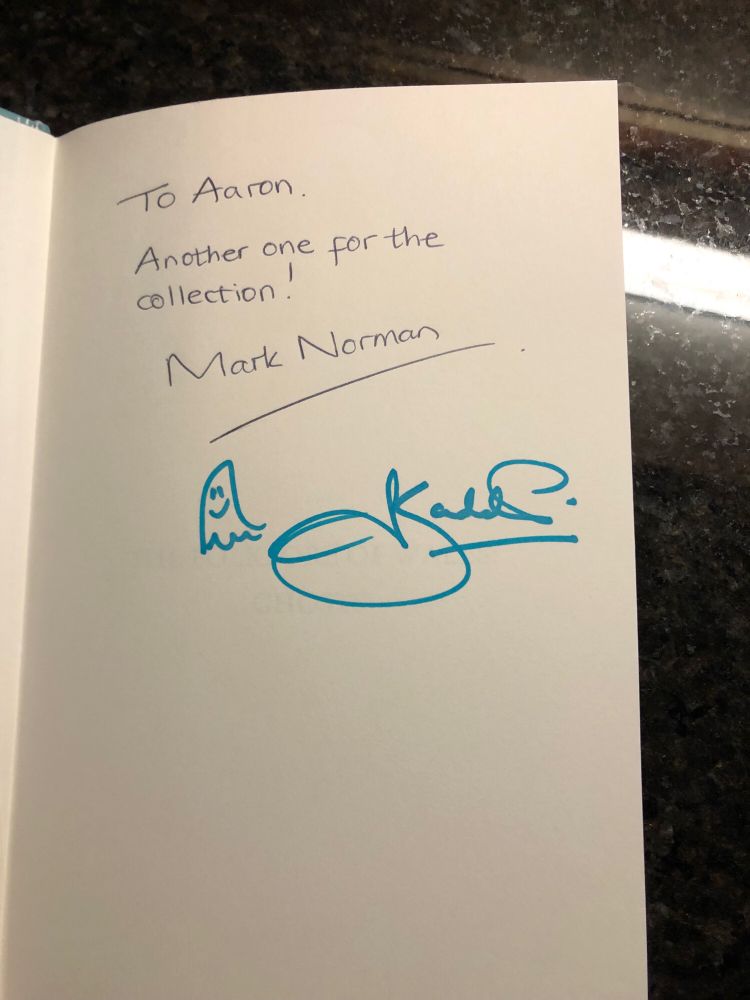 To Aaron.
Another one for the
collection!
Mark Norman